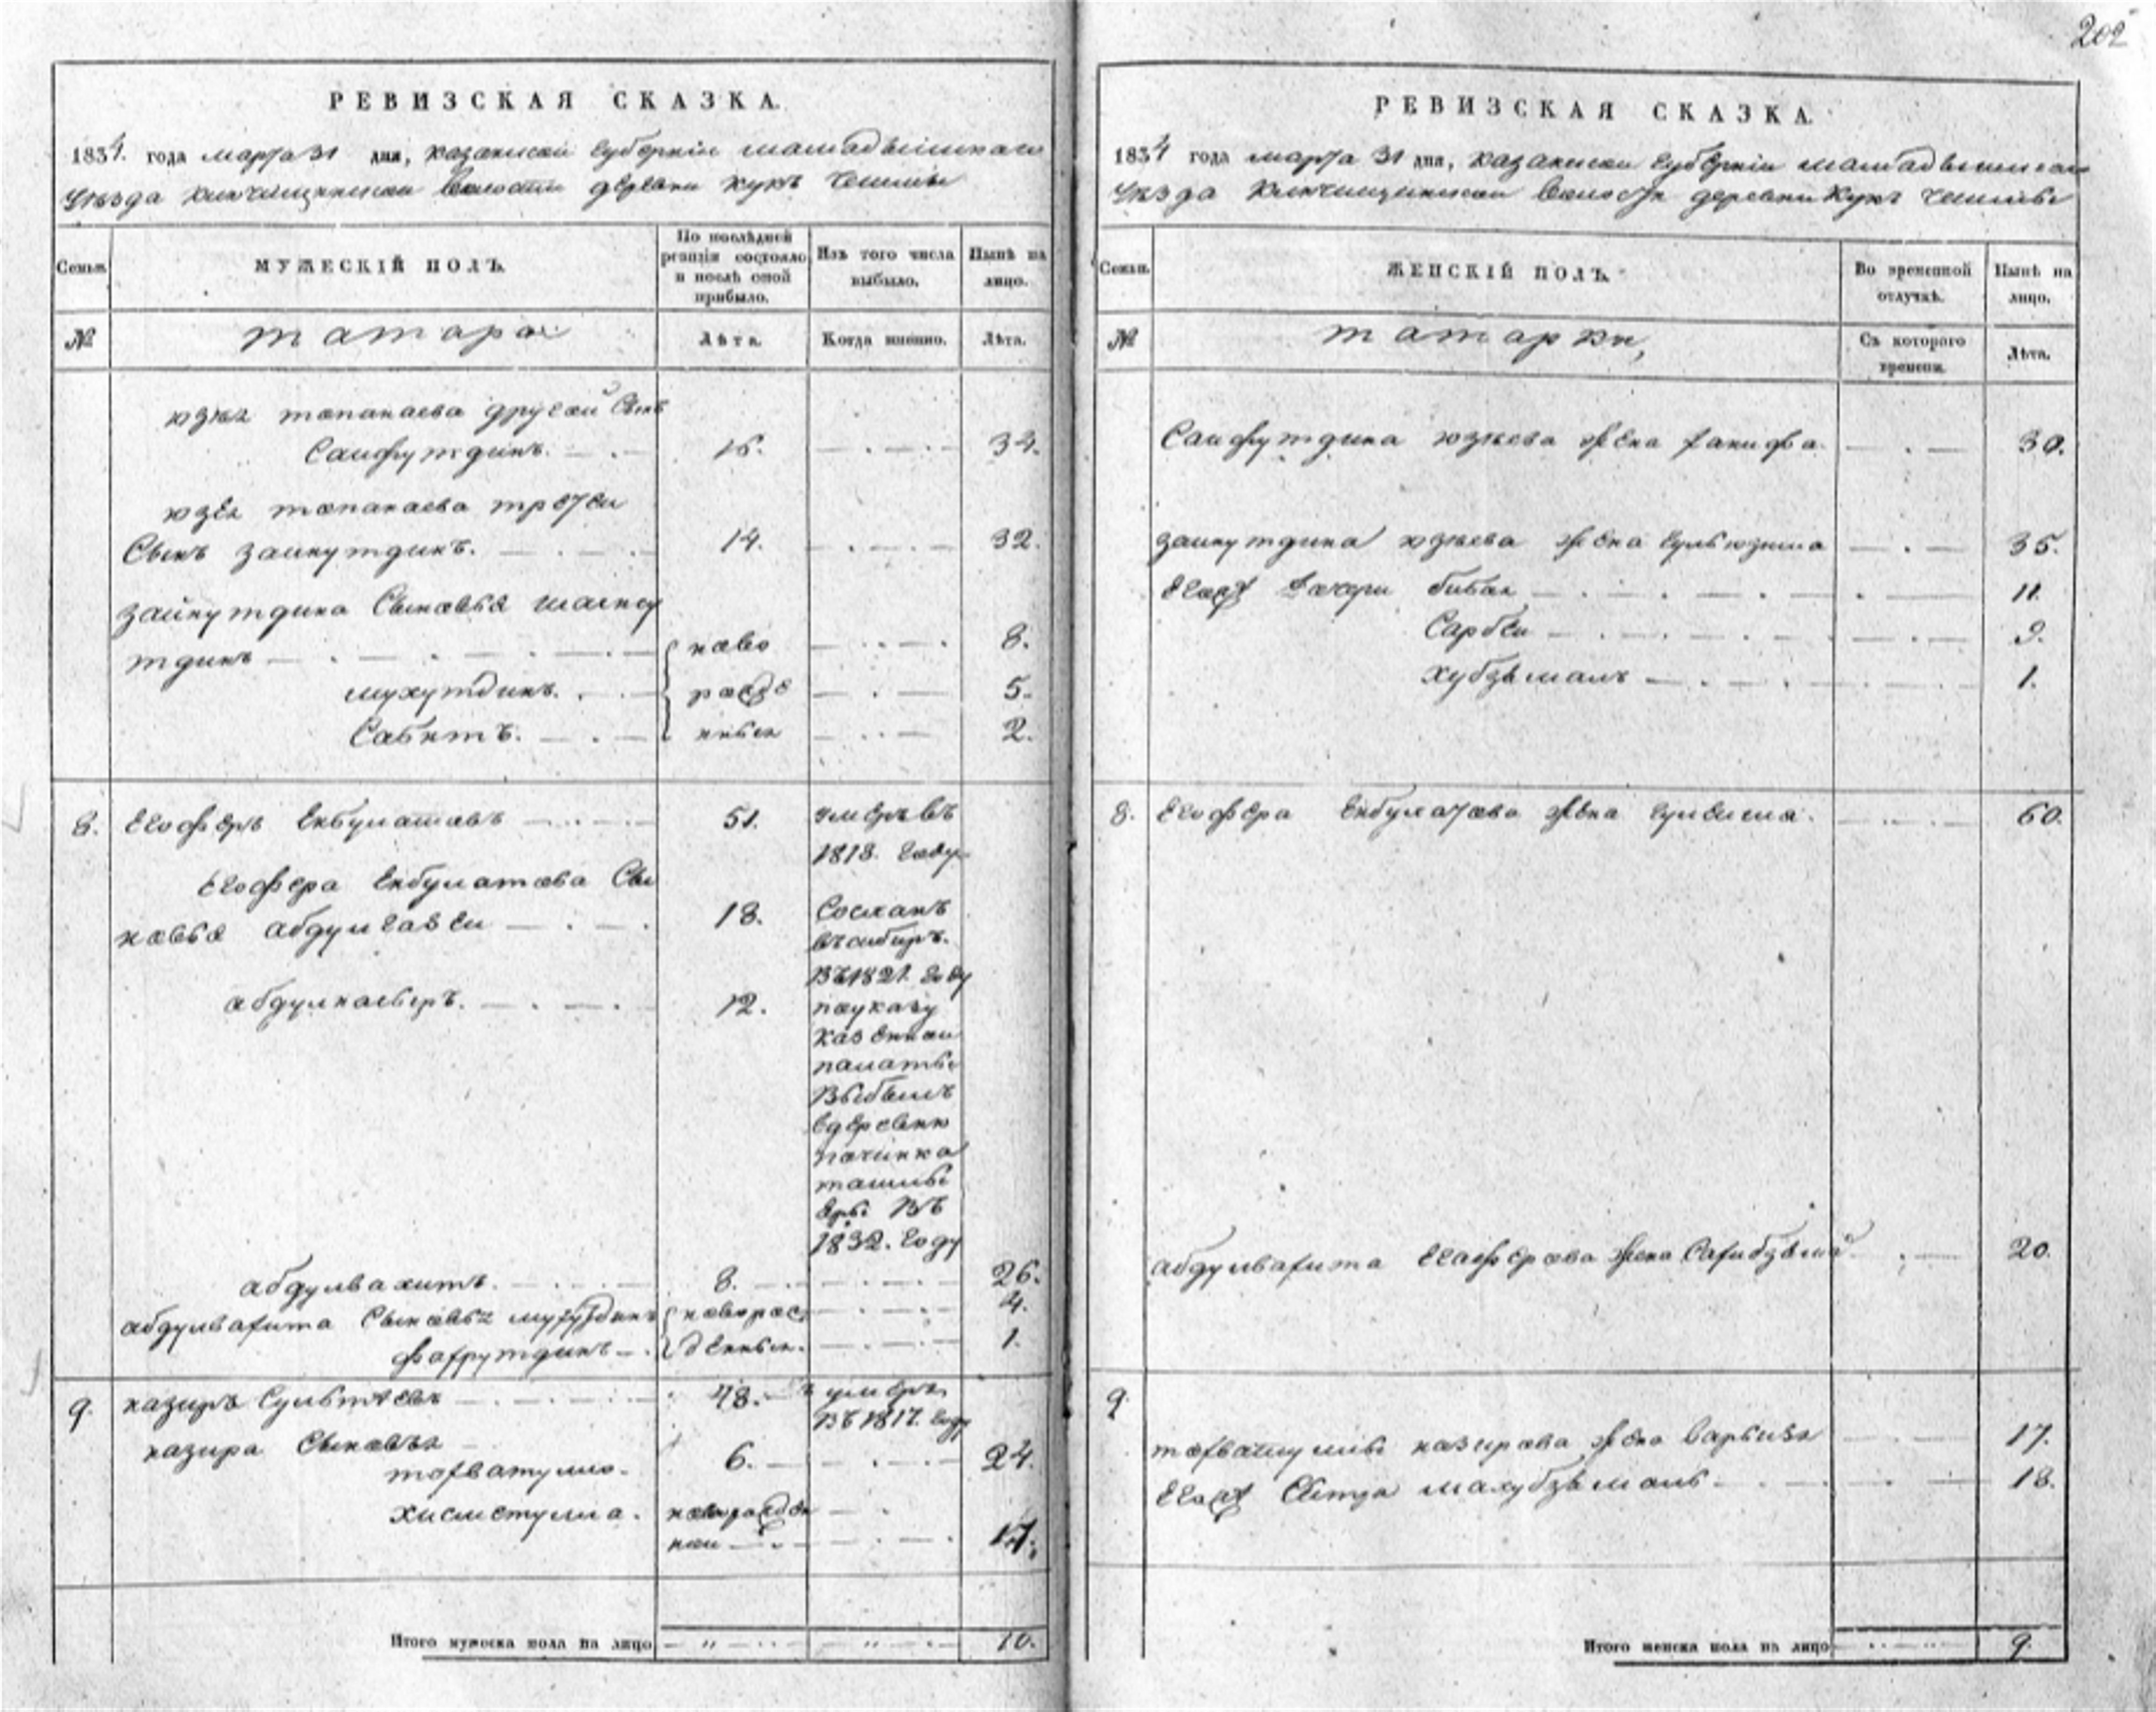 202
РЕВИЗСКАЯ СКАЗКА.
1834. года марта 31 дня, казанской губернии мамадышскаго
уѣзда кинчищинской волости деревни кукъ чишмы
Семьи.
МУЖЕСКІЙ ПОЛЪ.
По послѣдней ревизіи состояло и послѣ оной прибыло.
Изъ того числа выбыло.
Нынѣ на лицо.
№
татара
Лѣта.
Когда именно.
Лѣта.
юзея топакаева другой сынъ
Саифутдинъ. 16. 34.
юзея топакаева третеи
Сынъ заинутдинъ. 14. 32.
зайнутдина Сыновья
тдинъ ново 8.
мухутдинъ. рожде 5.
Сабитъ. нныя 2.
8. Егоферъ Екбулатовъ 51. умеръ въ
1813. году
Егофера Екбулатова Сы
новья абдулгазеи 18. Сосланъ
въ сибирь.
въ 1821. году
абдулнасыръ. 12. поуказу
казенной
палаты
выбылъ
вдеревню
починка
ташлы
еры въ
1832. году
абдулвахитъ. 8. 26.
абдулвахита Сыновья мухутдинъ новорож 4.
фахрутдинъ денныя. 1.
9. назиръ Сультеевъ 48. умеръ
въ 1817. году
назира Сыновья
тохватулла. 6. 24.
хисметулла. новорожден
ной 17.
Итого мужеска пола на лицо 10.
РЕВИЗСКАЯ СКАЗКА.
1834 года марта 31 дня, казанской губерніи мамадышскаго
уѣзда кинчищинской волости деревни кукъ чишмы
Семьи.
ЖЕНСКІЙ ПОЛЪ.
Во временной отлучкѣ.
Нынѣ на лицо.
№
татарки,
Съ котораго времени.
Лѣта.
Саифутдина юзеева жена ханифа. 30.
заинутдина юзеева жена гульюзюма 35.
Егож дочери бибая 11.
Сарбеи 9.
хубзямалъ 1.
8. Егофера Екбулатова жена 60.
абдулвахита Егоферова жена Сахибзямал 20.
9.
тохватуллы назирова жена 17.
Егож Сестра махубзямалъ 18.
Итого женска пола на лицо 9.